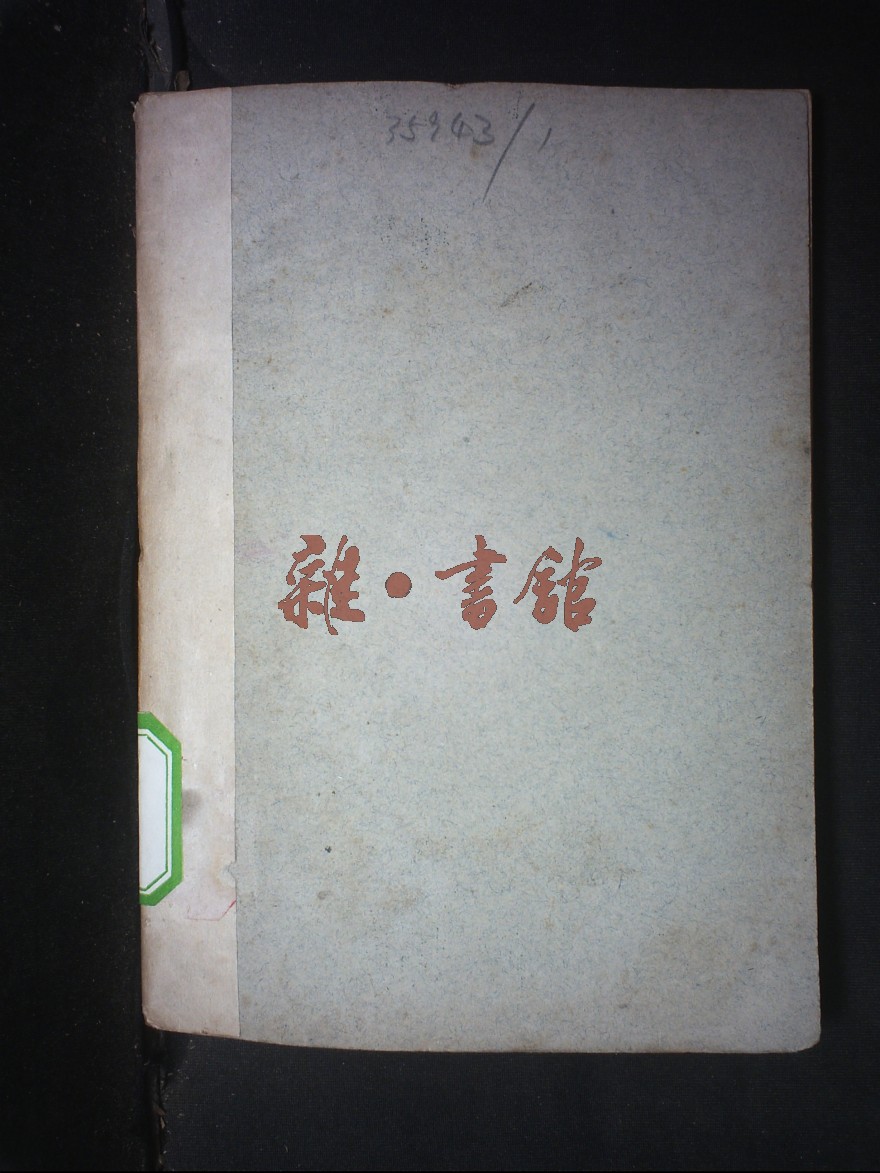 35943/1
雜·書館